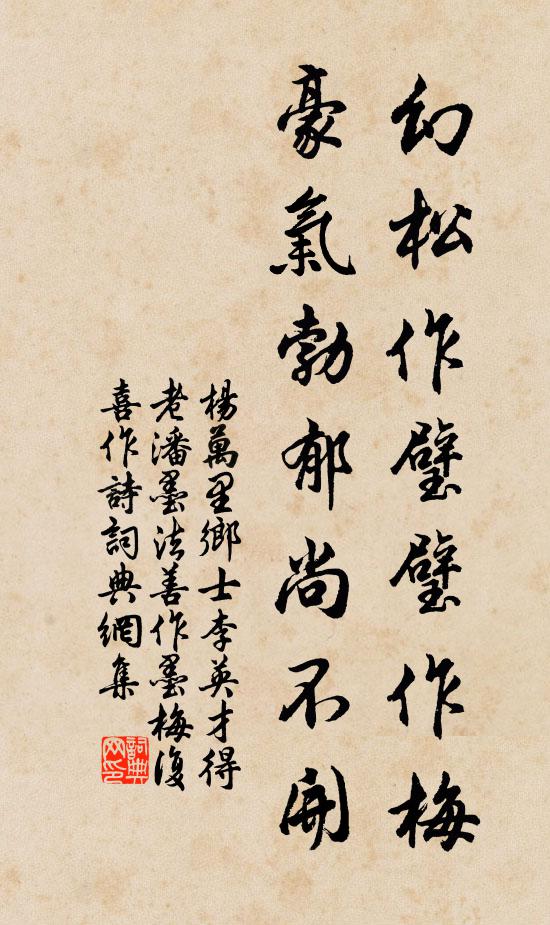 幻松作璧璧作梅
豪氣勃郁尚不開
楊萬里鄉士李英才得
老潘墨法善作墨梅復
喜作詩詞典網集
詞典網印